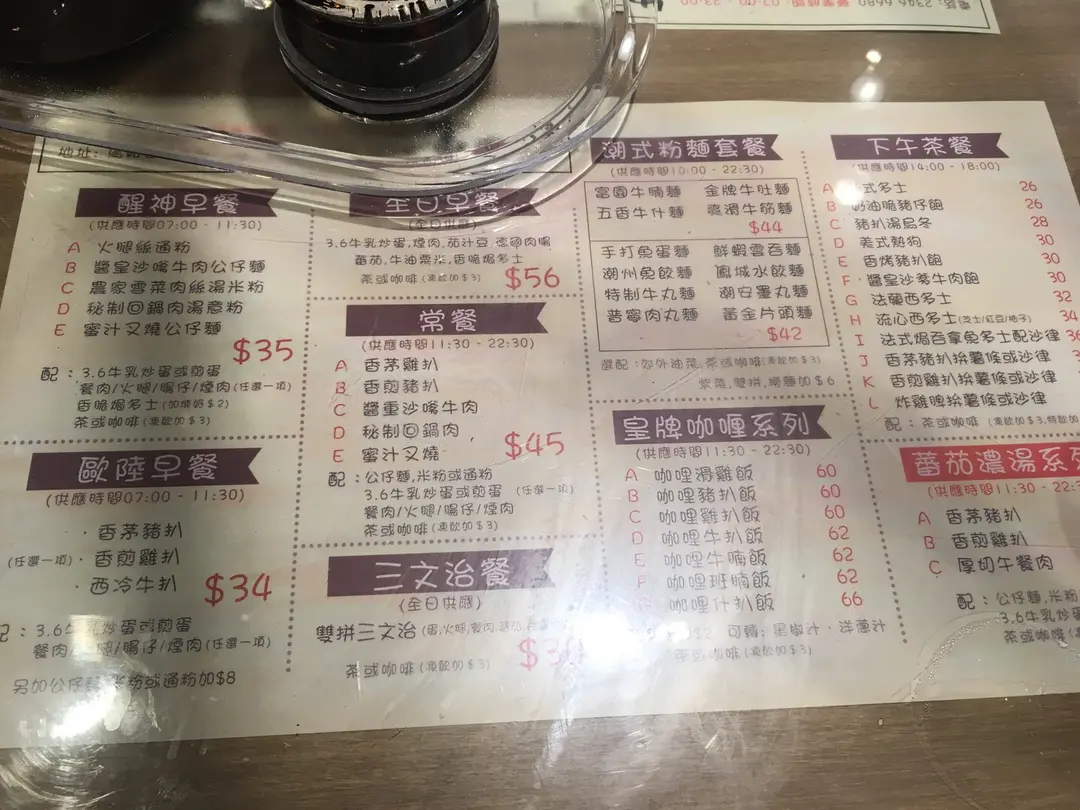 醒神早餐
(供應時間07:00 - 11:30)
A 火腿絲通粉
B 醬皇沙嗲牛肉公仔麵
C 農家雪菜肉絲湯米粉
D 秘制回鍋肉湯意粉
E 蜜汁叉燒公仔麵
$35
配：3.6牛乳炒蛋或煎蛋
餐肉/火腿/腸仔/煙肉(任選一項)
香脆焗多士(加煉奶$2)
茶或咖啡(凍飲加$3)
歐陸早餐
(供應時間07:00 - 11:30)
· 香茅豬扒
(任選一項)· 香煎雞扒
· 西冷牛扒
$34
：3.6牛乳炒蛋或煎蛋
餐肉/火腿/腸仔/煙肉(任選一項)
另加公仔麵,米粉或通粉加$8
全日早餐
(全日供應)
3.6牛乳炒蛋,煙肉,茄汁豆,德國肉腸
蕃茄,牛油粟米,香脆焗多士
茶或咖啡(凍飲加$3) $56
常餐
(供應時間11:30 - 22:30)
A 香茅雞扒
B 香煎豬扒
C 醬重沙嗲牛肉
D 秘制回鍋肉
E 蜜汁叉燒
$45
配：公仔麵,米粉或通粉
3.6牛乳炒蛋或煎蛋 (任選一項)
餐肉/火腿/腸仔/煙肉
茶或咖啡(凍飲加$3)
三文治餐
(全日供應)
雙拼三文治(蛋,火腿,餐肉
茶或咖啡(凍飲加$3)
潮式粉麵套餐
(供應時間10:00 - 22:30)
富園牛腩麵 金牌牛肚麵
五香牛什麵 爽滑牛筋麵
$44
手打魚蛋麵 鮮蝦雲吞麵
潮州魚餃麵 鳳城水餃麵
特制牛丸麵 潮安墨丸麵
普寧肉丸麵 黃金片頭麵
$42
選配：郊外油菜,茶或咖啡(凍飲加$3)
紫菜,雙拼,撈麵加$6
皇牌咖喱系列
(供應時間11:30 - 22:30)
A 咖哩滑雞飯 60
B 咖哩豬扒飯 60
C 咖哩雞扒飯 60
D 咖哩牛扒飯 62
E 咖哩牛腩飯 62
F 咖哩班腩飯 62
咖哩什扒飯 66
可轉：黑椒汁、洋蔥汁
茶或咖啡(凍飲加$3)
下午茶餐
(供應時間14:00 - 18:00)
A 式多士 26
B 奶油脆豬仔飽 26
C 豬扒湯烏冬 28
D 美式熱狗 30
E 香烤豬扒飽 30
F 醬皇沙爹牛肉飽 30
G 法蘭西多士 32
H 流心西多士(芝士/紅豆/柚子) 34
I 法式焗吞拿魚多士配沙律
J 香茅豬扒拚薯條或沙律
K 香煎雞扒拚薯條或沙律
L 炸雞脾拚薯條或沙律
配：茶或咖啡 (凍飲加$3,特飲加
蕃茄濃湯系列
(供應時間11:30 - 22:
A 香茅豬扒
B 香煎雞扒
C 厚切午餐肉
配：公仔麵,米粉
3.6牛乳炒
茶或咖啡